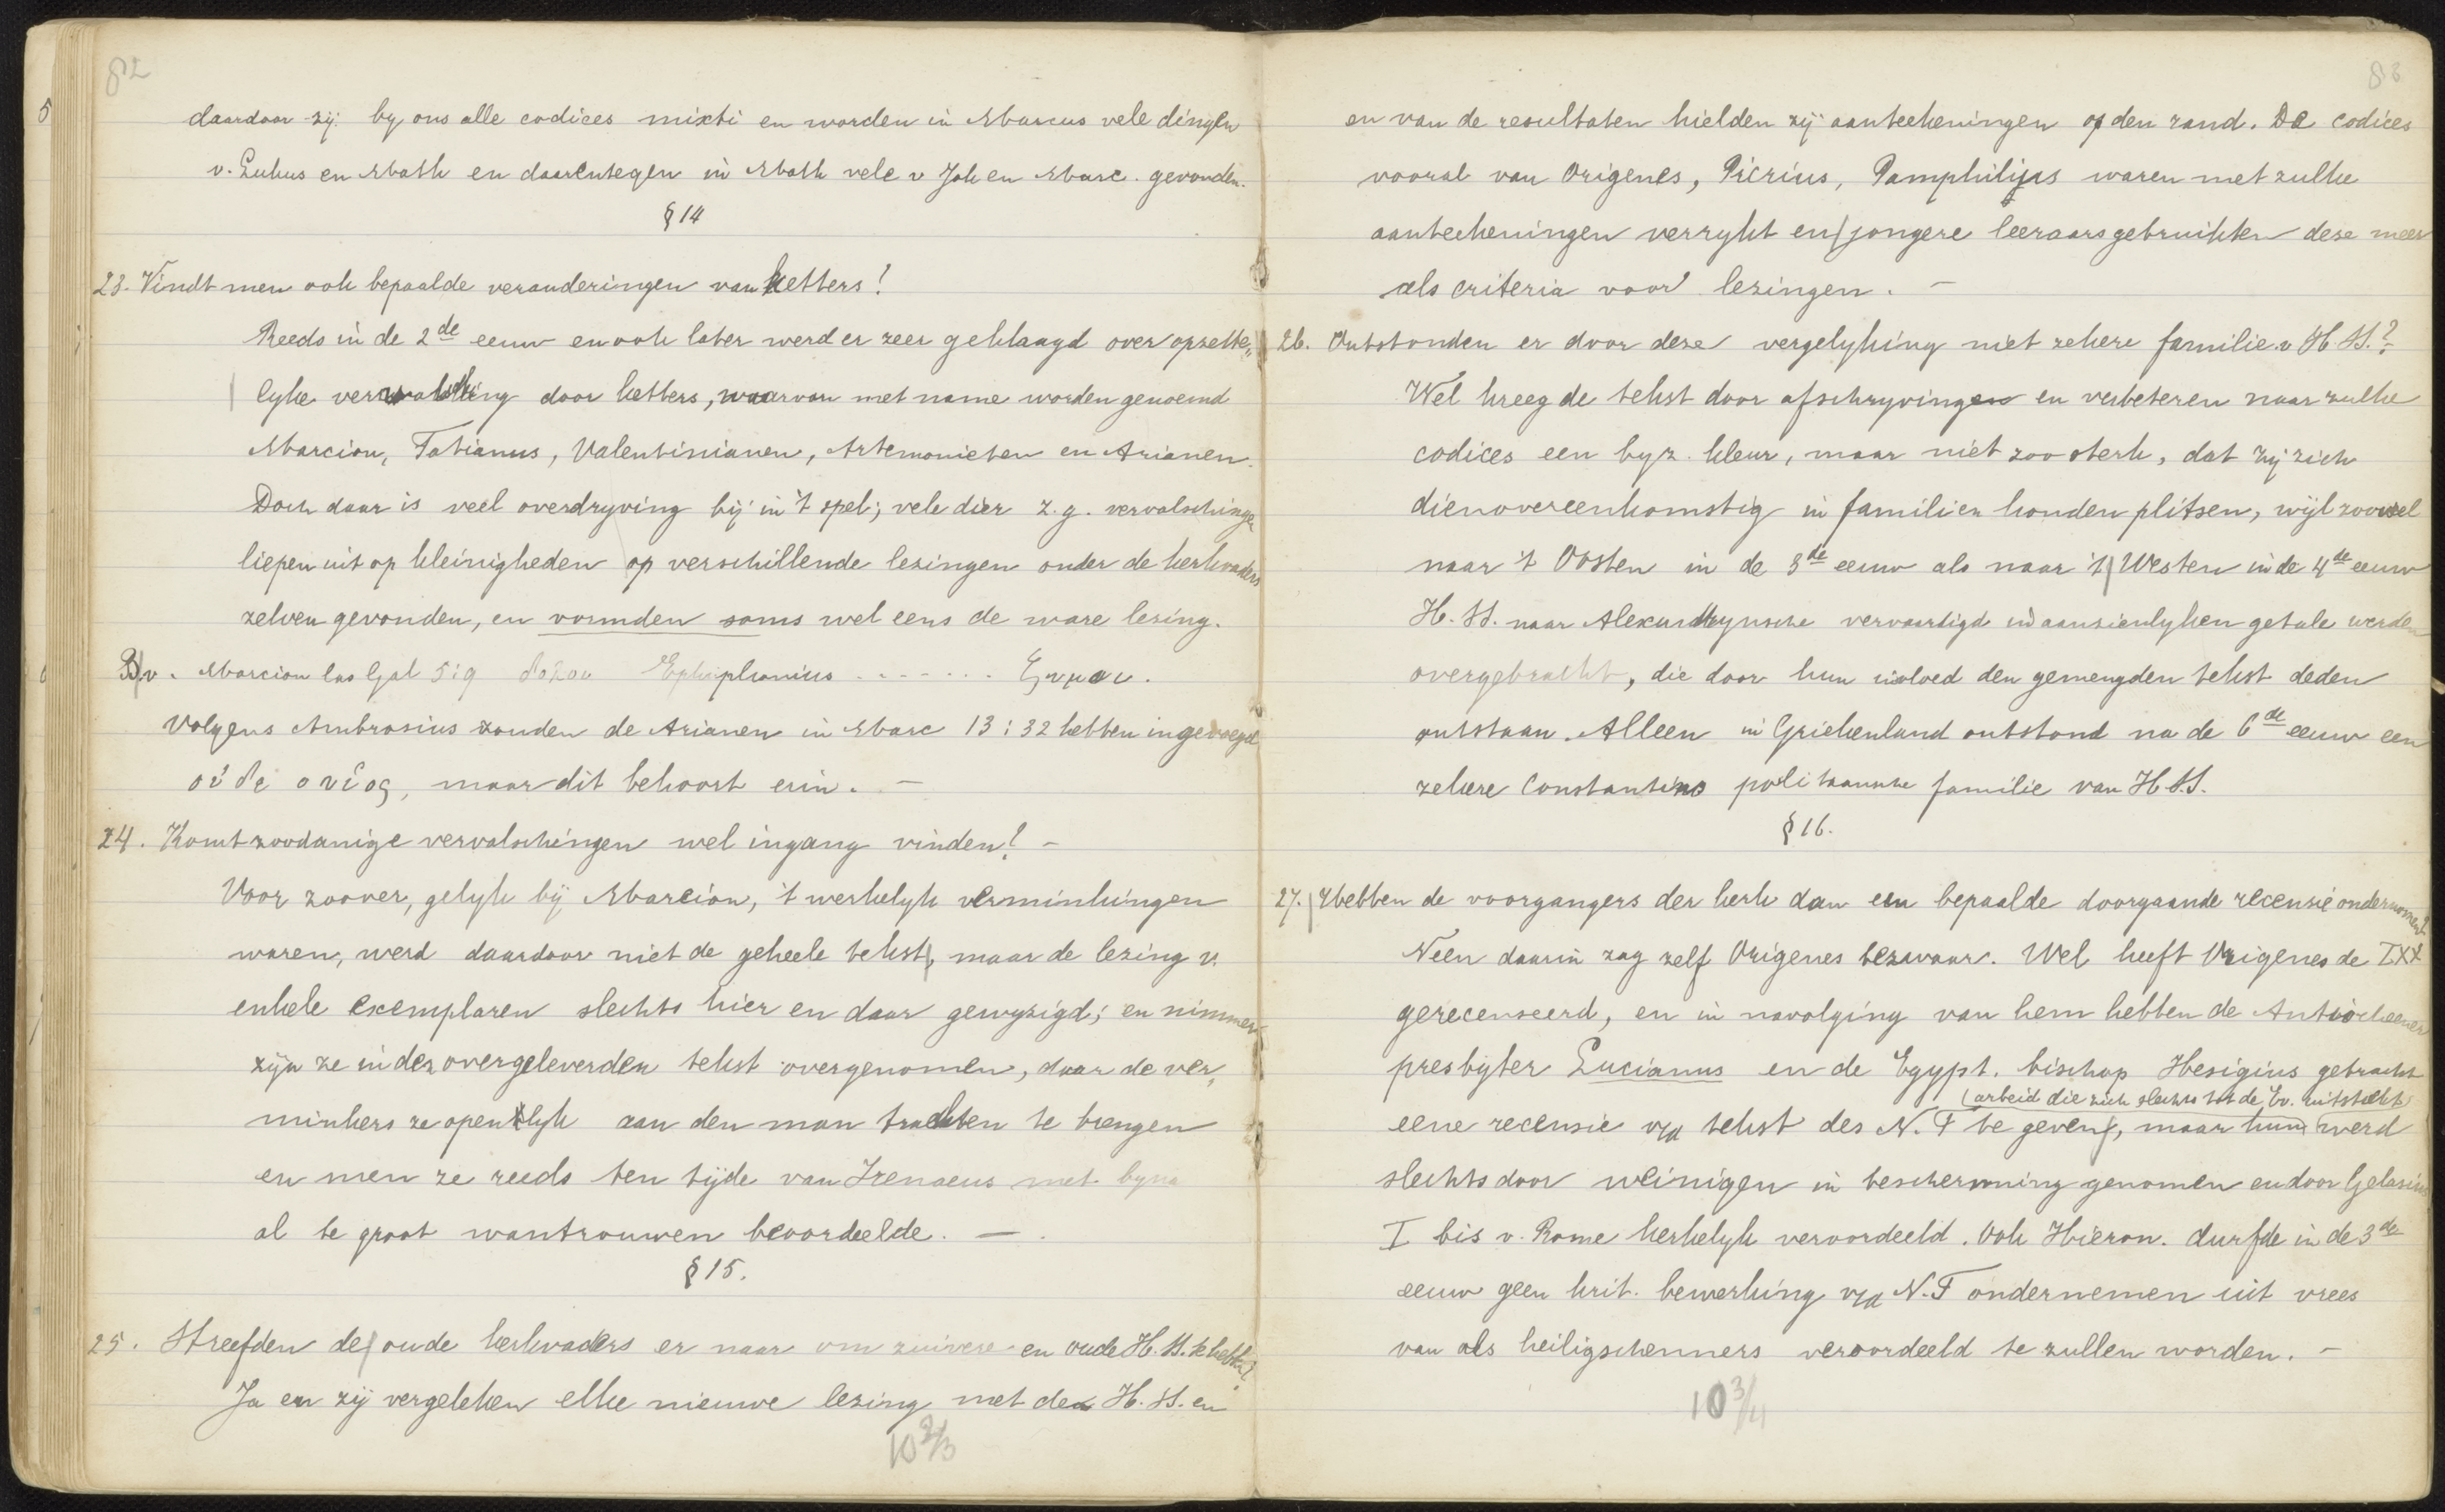 82
daardoor zij by ons alle codices mixti en worden in Marcus vele dingen
v. Lukus en Math en daarentegen in Math vele v Joh en Marc. gevonden.
§ 14
23. Vindt men ook bepaalde veranderingen van ketters?
Reeds in de 2de eeuw en ook later werd er zeer geklaagd over opzette„
lyke vervalsching door ketters, waarvan met name worden genoemd
Marcion, Tatianus, Valentinianen, Artemonieten en Arianen.
Doch daar is veel overdryving bij in 't spel; vele dier z.g. vervalschingen
liepen uit op kleinigheden op verschillende lezingen onder de kerkvaders
zelven gevonden, en vormden soms wel eens de ware lezing.
B.v. Marcion las Gal 5:9 δολοι Ephiphanius ....... ζυμοι.
Volgens Ambrosius zouden de Arianen in Marc 13:32 hebben ingevoegd
οὐδε ο υἱος, maar dit behoort erin. —
24. Komt zoodanige vervalschingen wel ingang vinden? —
Voor zoover, gelyk bij Marcion, 't werkelyk verminkingen
waren, werd daardoor niet de geheele tekst, maar de lezing v.
enkele exemplaren slechts hier en daar gewyzigd; en nimmer
zijn ze in den overgeleverden tekst overgenomen, daar de ver„
minkers ze openlyk aan den man trachten te brengen
en men ze reeds ten tijde van Irenaeus met byna
al te groot wantrouwen beoordeelde. —
§ 15.
25. Streefden de oude kerkvaders er naar om zuivere en oude H.S.S. te hebben?
Ja en zij vergeleken elke nieuwe lezing met den H.S.S. en
10 2/3
83
en van de resultaten hielden zij aanteekeningen op den rand. De codices
vooral van Origenes, Pierius, Pamphilius waren met zulke
aanteekeningen verrykt en jongere leeraars gebruikten deze meer
als criteria voor lezingen. —
26. Ontstonden er door deze vergelyking niet zekere familie v H.S.S.?
Wel kreeg de tekst door afschryvingen en verbeteren naar zulke
codices een byz. kleur, maar niet zoo sterk, dat zij zich
dienovereenkomstig in familien konden plitsen, wijl zoowel
naar 't Oosten in de 3de eeuw als naar 't Westen in de 4de eeuw
H.S.S. naar Alexandrynsche vervaardigd in aanzienlyken getale werden
overgebracht, die door hun invloed den gemengden tekst deden
ontstaan. Alleen in Griekenland ontstond na de 6de eeuw een
zekere Constantino politaansche familie van H.S.S.
§ 16.
27. Hebben de voorgangers der kerk dan een bepaalde doorgaande recensie ondernomen?
Neen daarin zag zelf Origenes bezwaar. Wel heeft Origenes de LXX
gerecenseerd, en in navolging van hem hebben de Antiocheener
presbyter Lucianus en de Egypt. bischop Hesigius getracht
(arbeid die zich slechts tot de Ev. uitstrekt)
eene recensie v/d tekst des N.T te geven, maar hun werd
slechts door weinigen in bescherming genomen en door Gelasius
I bis v. Rome kerkelyk veroordeeld. Ook Hieron. durfde in de 3de
eeuw geen krit. bewerking v/d N.T ondernemen uit vrees
van als heiligschenners veroordeeld te zullen worden. —
10 3/4